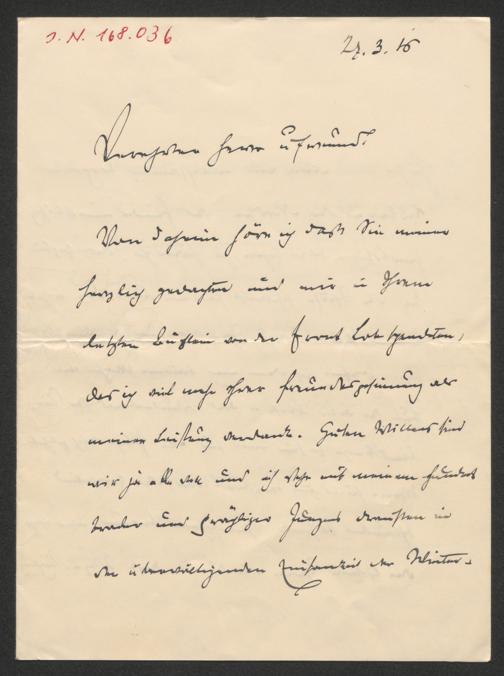 I. N. 168.036
27.3.16
Verehrter Herr u Freund!
Von daheim höre ich dass Sie meiner
herzlich gedachten und mir in Ihrem
letzten Büchlein von der Front Lob spendeten,
das ich viel mehr Ihrer Freundesgesinnung als
meiner Leistung verdanke. Guten Willens sind
wir ja alle und ich stehe mit meinem Hundert
braver und prächtiger Jungens draussen in
der überwältigenden Einsamkeit der Winter-